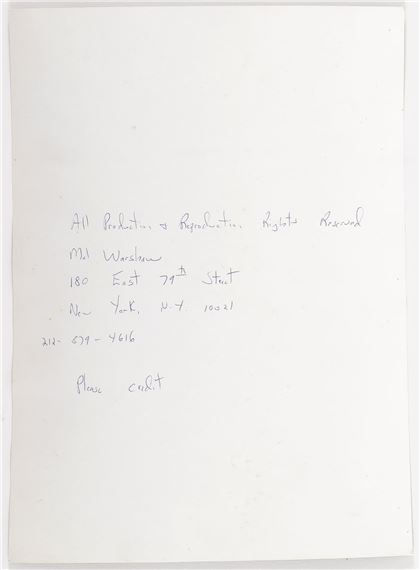 All Production & Reproduction Rights Reserved
Mel Warshaw
180 East 79th Street
New York, N.Y. 10021
212- 879-4616
Please credit